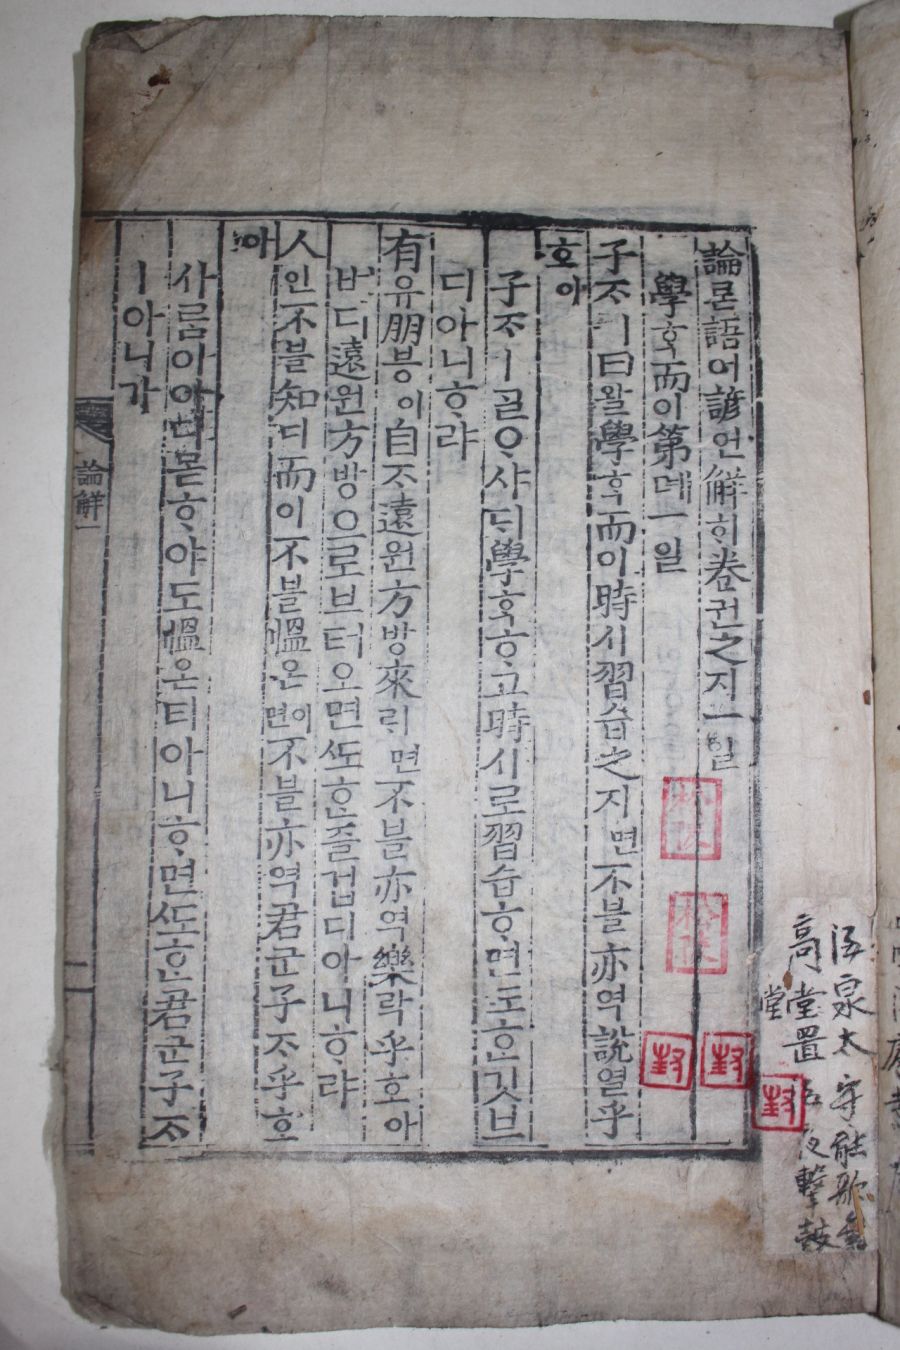 論론語어諺언解ᄒᆡ卷권之지一일
學ᄒᆞᆨ而이第뎨一일
子ᄌᆞㅣ曰왈學ᄒᆞᆨ而이時시習습之지면不블亦역說열乎
호아
子ᄌᆞㅣᄀᆞᆯᄋᆞ샤ᄃᆡ學ᄒᆞᆨᄒᆞ고時시로習습ᄒᆞ면ᄯᅩᄒᆞᆫ깃브
디아니ᄒᆞ랴
有유朋븡이自ᄌᆞ遠원方방來ᄅᆡ면不블亦역樂락乎호아
버디遠원方방으로브터오면ᄯᅩᄒᆞᆫ즐겁디아니ᄒᆞ랴
人인不블知디而이不블慍온이면不블亦역君군子ᄌᆞ乎호
아
사ᄅᆞᆷ이아디몯ᄒᆞ야도慍온티아니ᄒᆞ면ᄯᅩᄒᆞᆫ君군子ᄌᆞ
ㅣ아니가
論解一
封
封
封
泉太守能歌
高堂置
夜擊鼓
堂